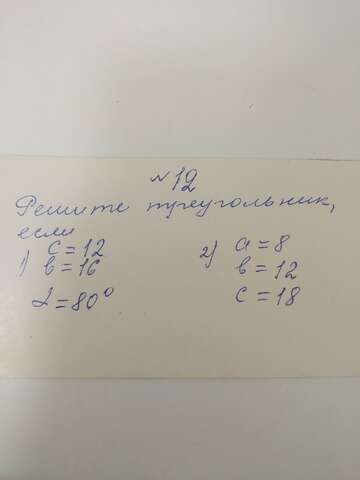 № 12
Решите треугольник,
если
1) c = 12
в = 16
α = 80°
2) a = 8
в = 12
c = 18